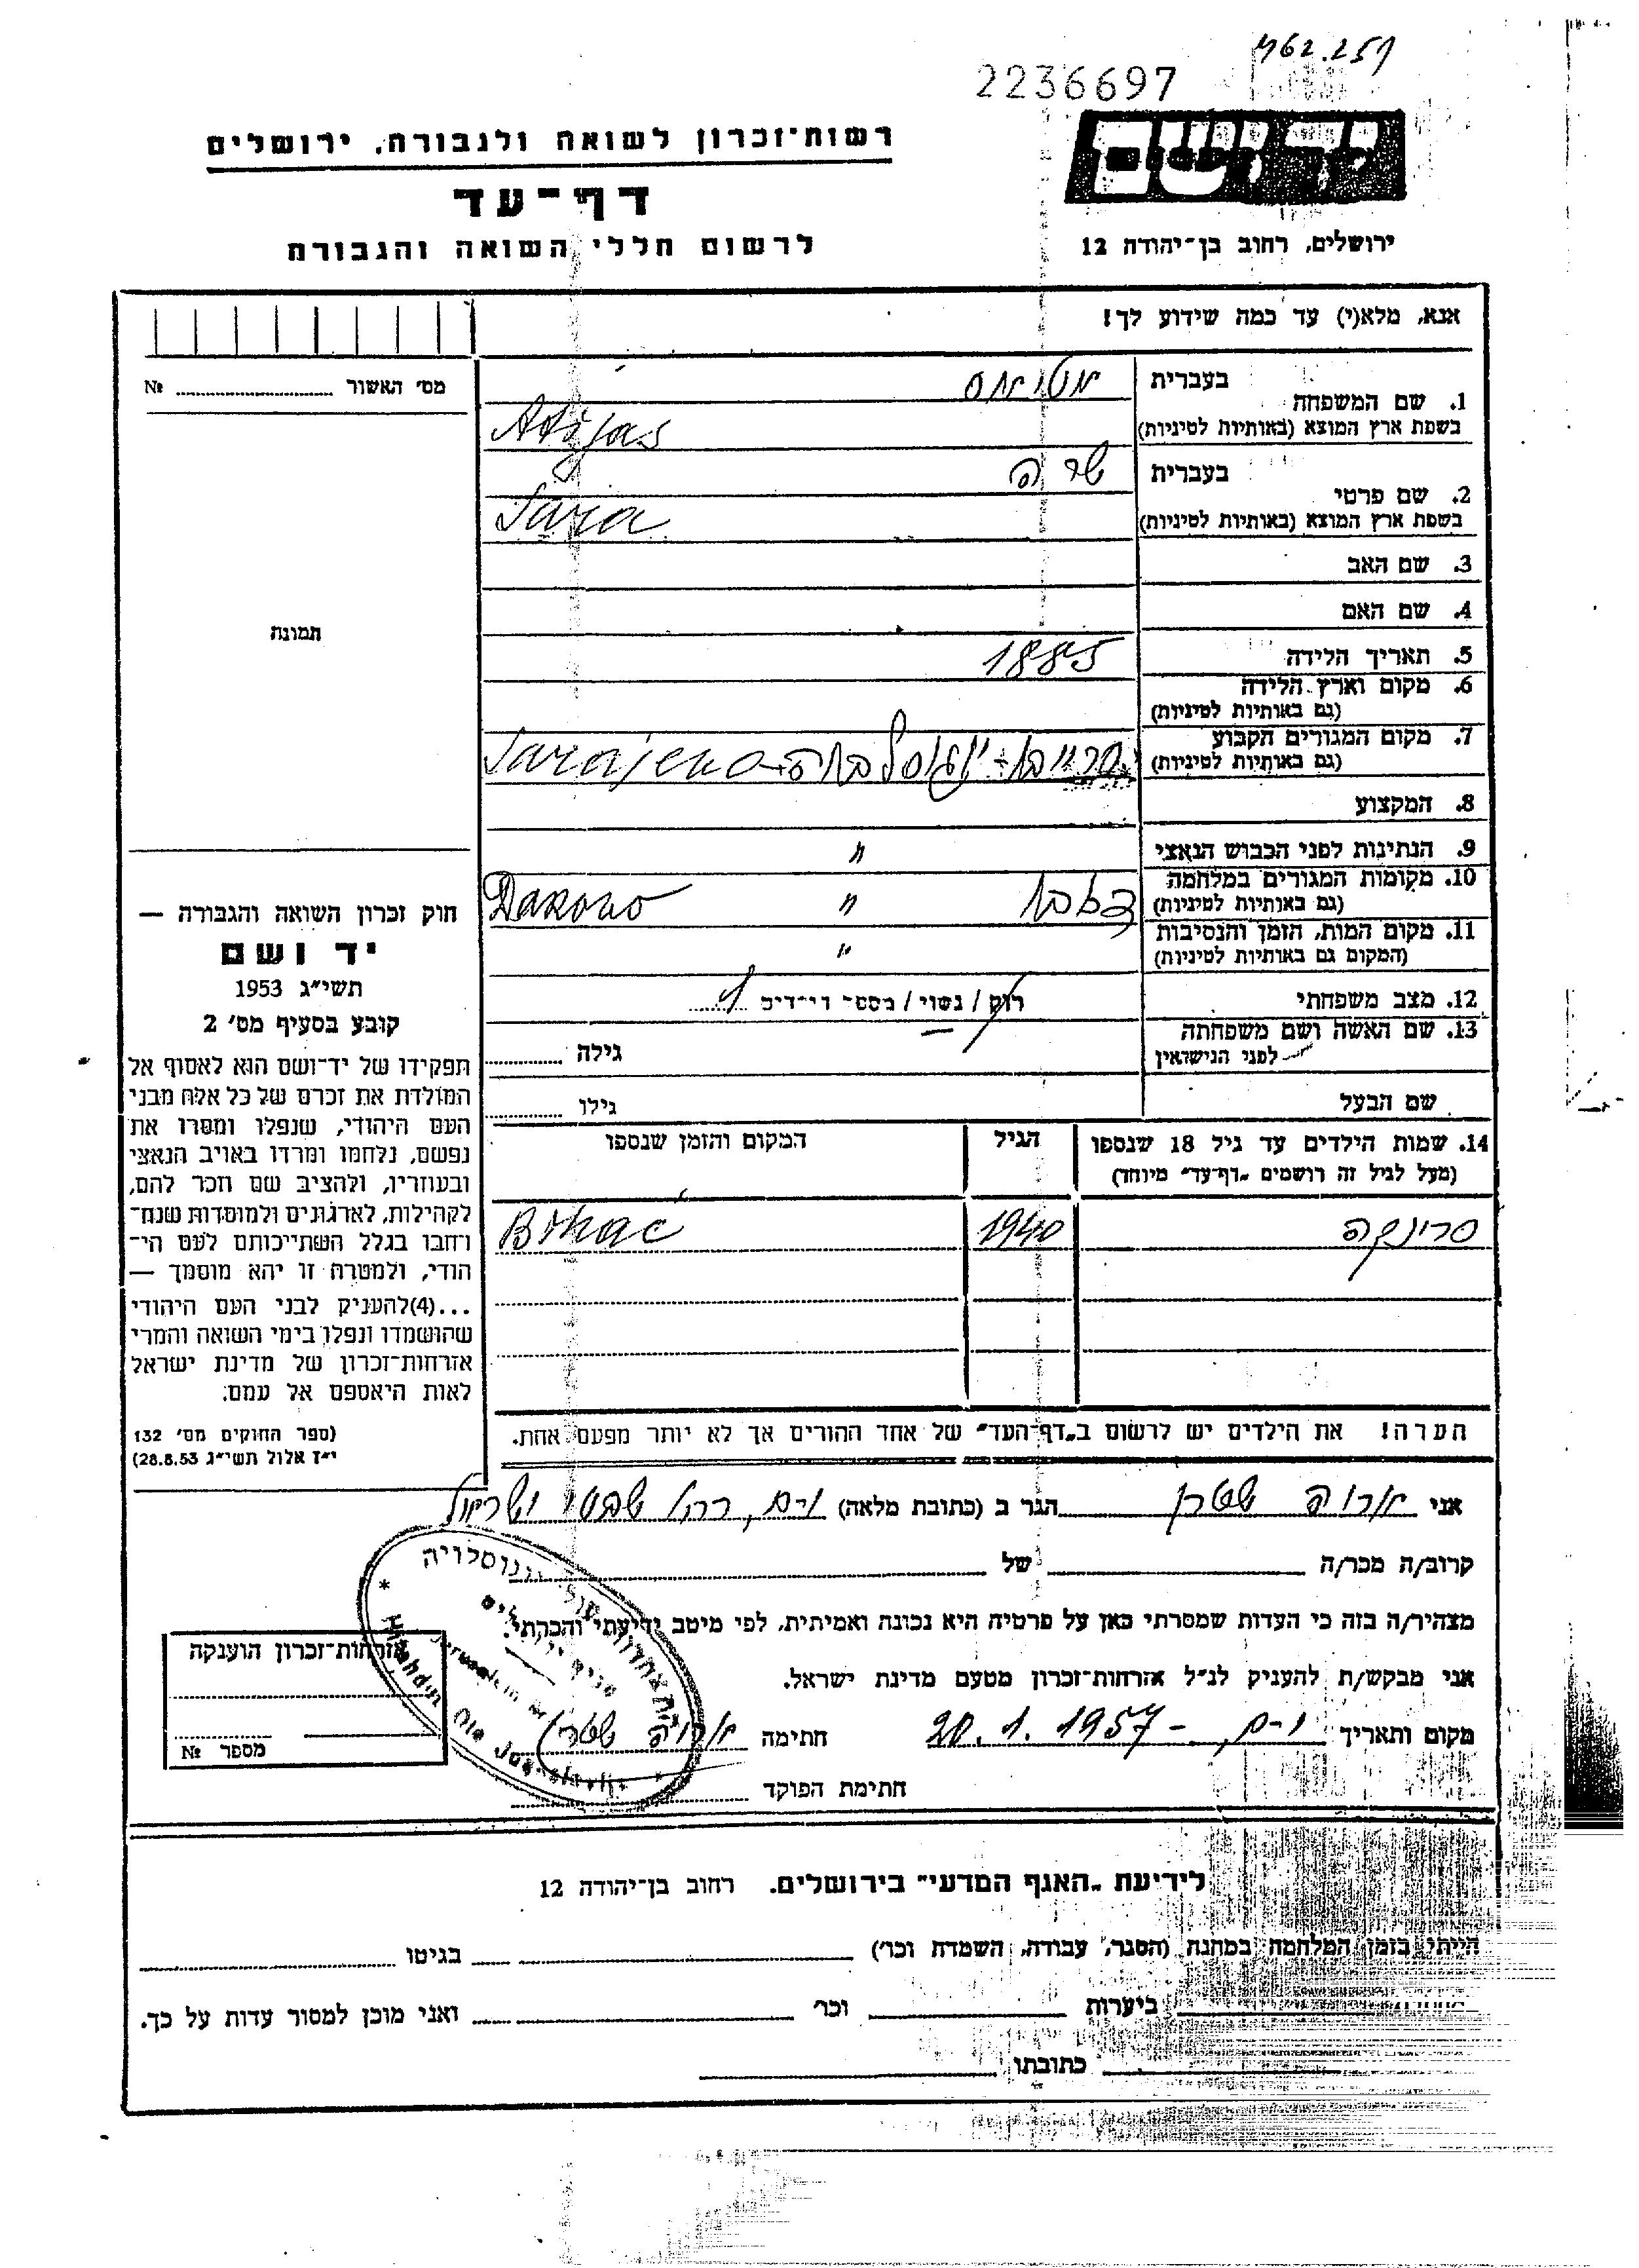 462.251
2236697
יד ושם
רשות־זכרון לשואה ולגבורה, ירושלים
דף־עד
לרשום חללי השואה והגבורה
ירושלים, רחוב בן־יהודה 12
אנא, מלא(י) עד כמה שידוע לך!
מס' האשור № 
1. שם המשפחה
בעברית אטיאס
בשפת ארץ המוצא (באותיות לטיניות) Atijas
2. שם פרטי
בעברית שרה
בשפת ארץ המוצא (באותיות לטיניות) Sara
3. שם האב
4. שם האם
תמונה
5. תאריך הלידה 1885
6. מקום וארץ הלידה
(גם באותיות לטיניות)
7. מקום המגורים הקבוע
(גם באותיות לטיניות) סרייבו - יוגוסלביה Sarajevo
8. המקצוע
9. הנתינות לפני הכבוש הנאצי "
10. מקומות המגורים במלחמה
(גם באותיות לטיניות) " Đakovo
11. מקום המות, הזמן והנסיבות
(המקום גם באותיות לטיניות) "
12. מצב משפחתי רוק / נשוי / מספר ילדים
13. שם האשה ושם משפחתה
לפני הנישואין גילה
שם הבעל גילו
14. שמות הילדים עד גיל 18 שנספו
(מעל לגיל זה רושמים "דף־עד" מיוחד)
הגיל
המקום והזמן שנספו
סרינקה 1940 Bihać
הערה! את הילדים יש לרשום ב"דף־העד" של אחד ההורים אך לא יותר מפעם אחת.
חוק זכרון השואה והגבורה —
יד ושם
תשי"ג 1953
קובע בסעיף מס' 2
תפקידו של יד־ושם הוא לאסוף אל
המולדת את זכרם של כל אלה מבני
העם היהודי, שנפלו ומסרו את
נפשם, נלחמו ומרדו באויב הנאצי
ובעוזריו, ולהציב שם וזכר להם,
לקהילות, לארגונים ולמוסדות שנח־
רחבו בגלל השתייכותם לעם הי־
הודי, ולמטרה זו יהא מוסמך —
...(4)להעניק לבני העם היהודי
שהושמדו ונפלו בימי השואה והמרי
אזרחות־זכרון של מדינת ישראל
לאות היאספם אל עמם.
(ספר החוקים מס' 132
י"ז אלול תשי"ג 28.8.53)
אני אריה שטרן הגר ב (כתובת מלאה) י-ם, רח' שבטי ישראל
קרוב/ה מכר/ה של
מצהיר/ה בזה כי העדות שמסרתי כאן על פרטיה היא נכונה ואמיתית, לפי מיטב ידיעתי והכרתי.
אני מבקש/ת להעניק לנ"ל אזרחות־זכרון מטעם מדינת ישראל.
מקום ותאריך י-ם, - 20.1.1957 חתימה אריה שטרן
חתימת הפוקד
אזרחות־זכרון הוענקה
מספר №
לידיעת "האגף המדעי" בירושלים. רחוב בן־יהודה 12
הייתי בזמן המלחמה במחנה (הסגר, עבודה, השמדה וכו') בגיטו
ביערות וכו' ואני מוכן למסור עדות על כך.
כתובתו